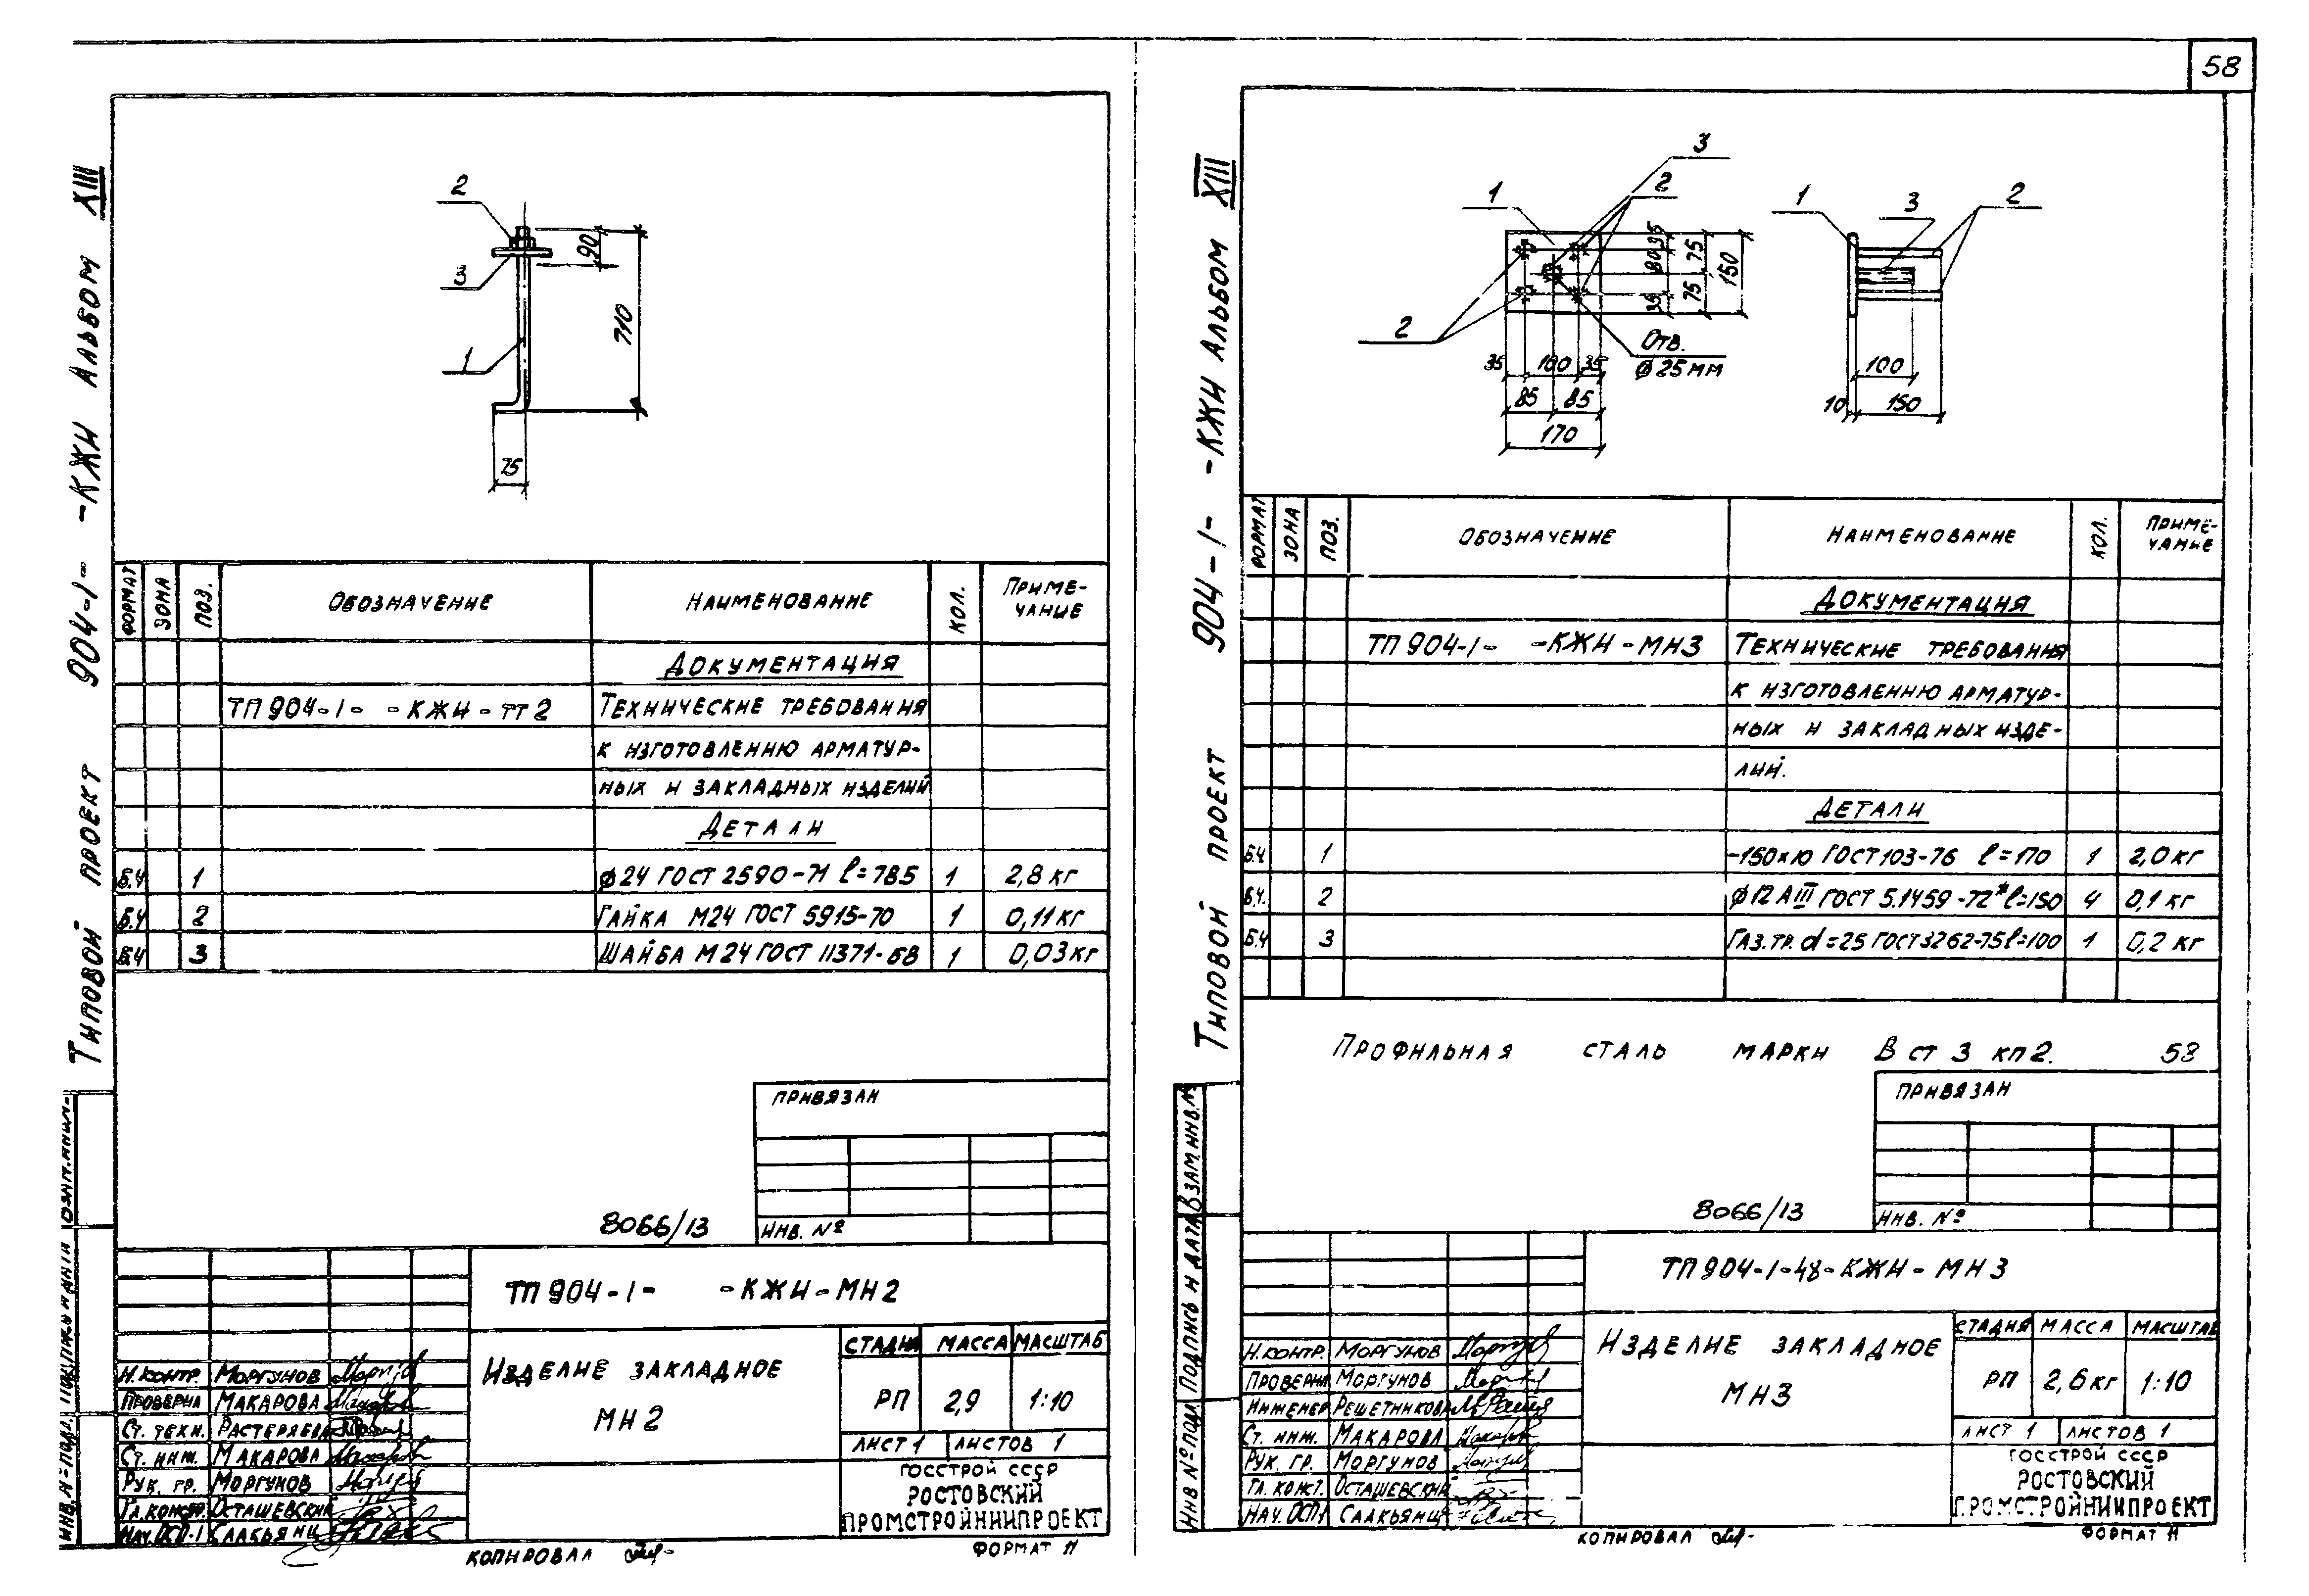 58
Типовой проект 904-1- -КЖИ Альбом XIII
2
3
1
90
710
75
ФОРМАТ
ЗОНА
ПОЗ.
ОБОЗНАЧЕНИЕ
НАИМЕНОВАНИЕ
КОЛ.
ПРИМЕ-
ЧАНИЕ
ДОКУМЕНТАЦИЯ
ТП 904-1- -КЖИ-ТТ2 ТЕХНИЧЕСКИЕ ТРЕБОВАНИЯ
К ИЗГОТОВЛЕНИЮ АРМАТУР-
НЫХ И ЗАКЛАДНЫХ ИЗДЕЛИЙ
ДЕТАЛИ
Б.Ч 1 ϕ24 ГОСТ 2590-71 ℓ=785 1 2,8 кг
Б.Ч 2 ГАЙКА М24 ГОСТ 5915-70 1 0,11кг
Б.Ч 3 ШАЙБА М24 ГОСТ 11371-68 1 0,03кг
ПРИВЯЗАН
8066/13
ИНВ. №
ТП 904-1- -КЖИ-МН2
ИЗДЕЛИЕ ЗАКЛАДНОЕ
МН2
СТАДИЯ МАССА МАСШТАБ
РП 2,9 1:10
ЛИСТ 1 ЛИСТОВ 1
ГОССТРОЙ СССР
РОСТОВСКИЙ
ПРОМСТРОЙНИИПРОЕКТ
Н.КОНТР. МОРГУНОВ
ПРОВЕРИЛ МАКАРОВА
СТ. ТЕХН. РАСТЕРЯЕВА
СТ. ИНЖ. МАКАРОВА
РУК. ГР. МОРГУНОВ
ГЛ.КОНСТР. ОСТАШЕВСКИЙ
НАЧ.ОСП-1 СААКЬЯНЦ
КОПИРОВАЛ
ФОРМАТ 11
Типовой проект 904-1- -КЖИ Альбом XIII
3
2
1
2
35
80
35
75
75
150
Отв.
ϕ25мм
35 100 35
85 85
170
1
3
2
100
10 150
ФОРМАТ
ЗОНА
ПОЗ.
ОБОЗНАЧЕНИЕ
НАИМЕНОВАНИЕ
КОЛ.
ПРИМЕ-
ЧАНИЕ
ДОКУМЕНТАЦИЯ
ТП 904-1- -КЖИ-МН3 ТЕХНИЧЕСКИЕ ТРЕБОВАНИЯ
К ИЗГОТОВЛЕНИЮ АРМАТУР-
НЫХ И ЗАКЛАДНЫХ ИЗДЕ-
ЛИЙ.
ДЕТАЛИ
Б.Ч 1 -150х10 ГОСТ 103-76 ℓ=170 1 2,0 кг
Б.Ч. 2 ϕ12 АIII ГОСТ 5.1459-72* ℓ=150 4 0,1 кг
Б.Ч 3 ГАЗ.ТР. d=25 ГОСТ 3262-75 ℓ=100 1 0,2 кг
ПРОФИЛЬНАЯ СТАЛЬ МАРКИ В СТ 3 КП2. 58
ПРИВЯЗАН
8066/13
ИНВ. №
ИНВ № ПОДЛ. ПОДПИСЬ И ДАТА ВЗАМ.ИНВ.№
ТП 904-1-48-КЖИ-МН3
ИЗДЕЛИЕ ЗАКЛАДНОЕ
МН3
СТАДИЯ МАССА МАСШТАБ
РП 2,6кг 1:10
ЛИСТ 1 ЛИСТОВ 1
ГОССТРОЙ СССР
РОСТОВСКИЙ
ПРОМСТРОЙНИИПРОЕКТ
Н.КОНТР. МОРГУНОВ
ПРОВЕРИЛ МОРГУНОВ
ИНЖЕНЕР РЕШЕТНИКОВА
СТ. ИНЖ. МАКАРОВА
РУК. ГР. МОРГУНОВ
ГЛ. КОНСТ. ОСТАШЕВСКИЙ
НАЧ.ОСП-1 СААКЬЯНЦ
КОПИРОВАЛ
ФОРМАТ 11